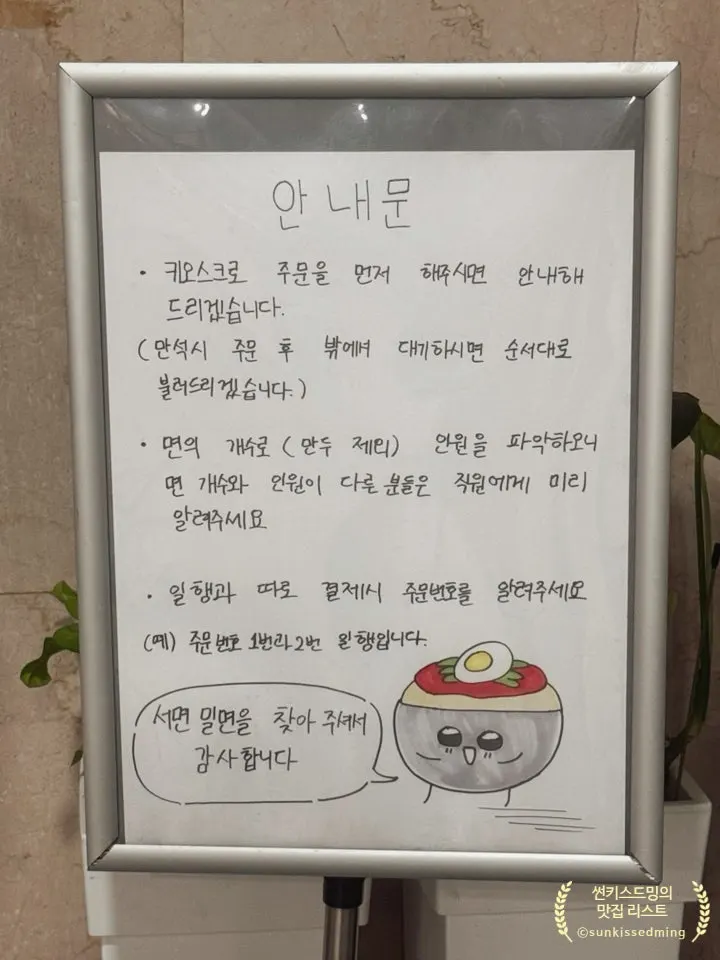 안내문
· 키오스크로 주문을 먼저 해주시면 안내해
드리겠습니다.
(만석시 주문 후 밖에서 대기하시면 순서대로
불러드리겠습니다.)
· 면의 개수로 (만두 제외) 인원을 파악하오니
면 개수와 인원이 다른 분들은 직원에게 미리
알려주세요
· 일행과 따로 결제시 주문번호를 알려주세요
(예) 주문번호 1번과 2번 일행입니다.
서면 밀면을 찾아 주셔서
감사합니다
썬키스드밍의
맛집 리스트
©sunkissedming